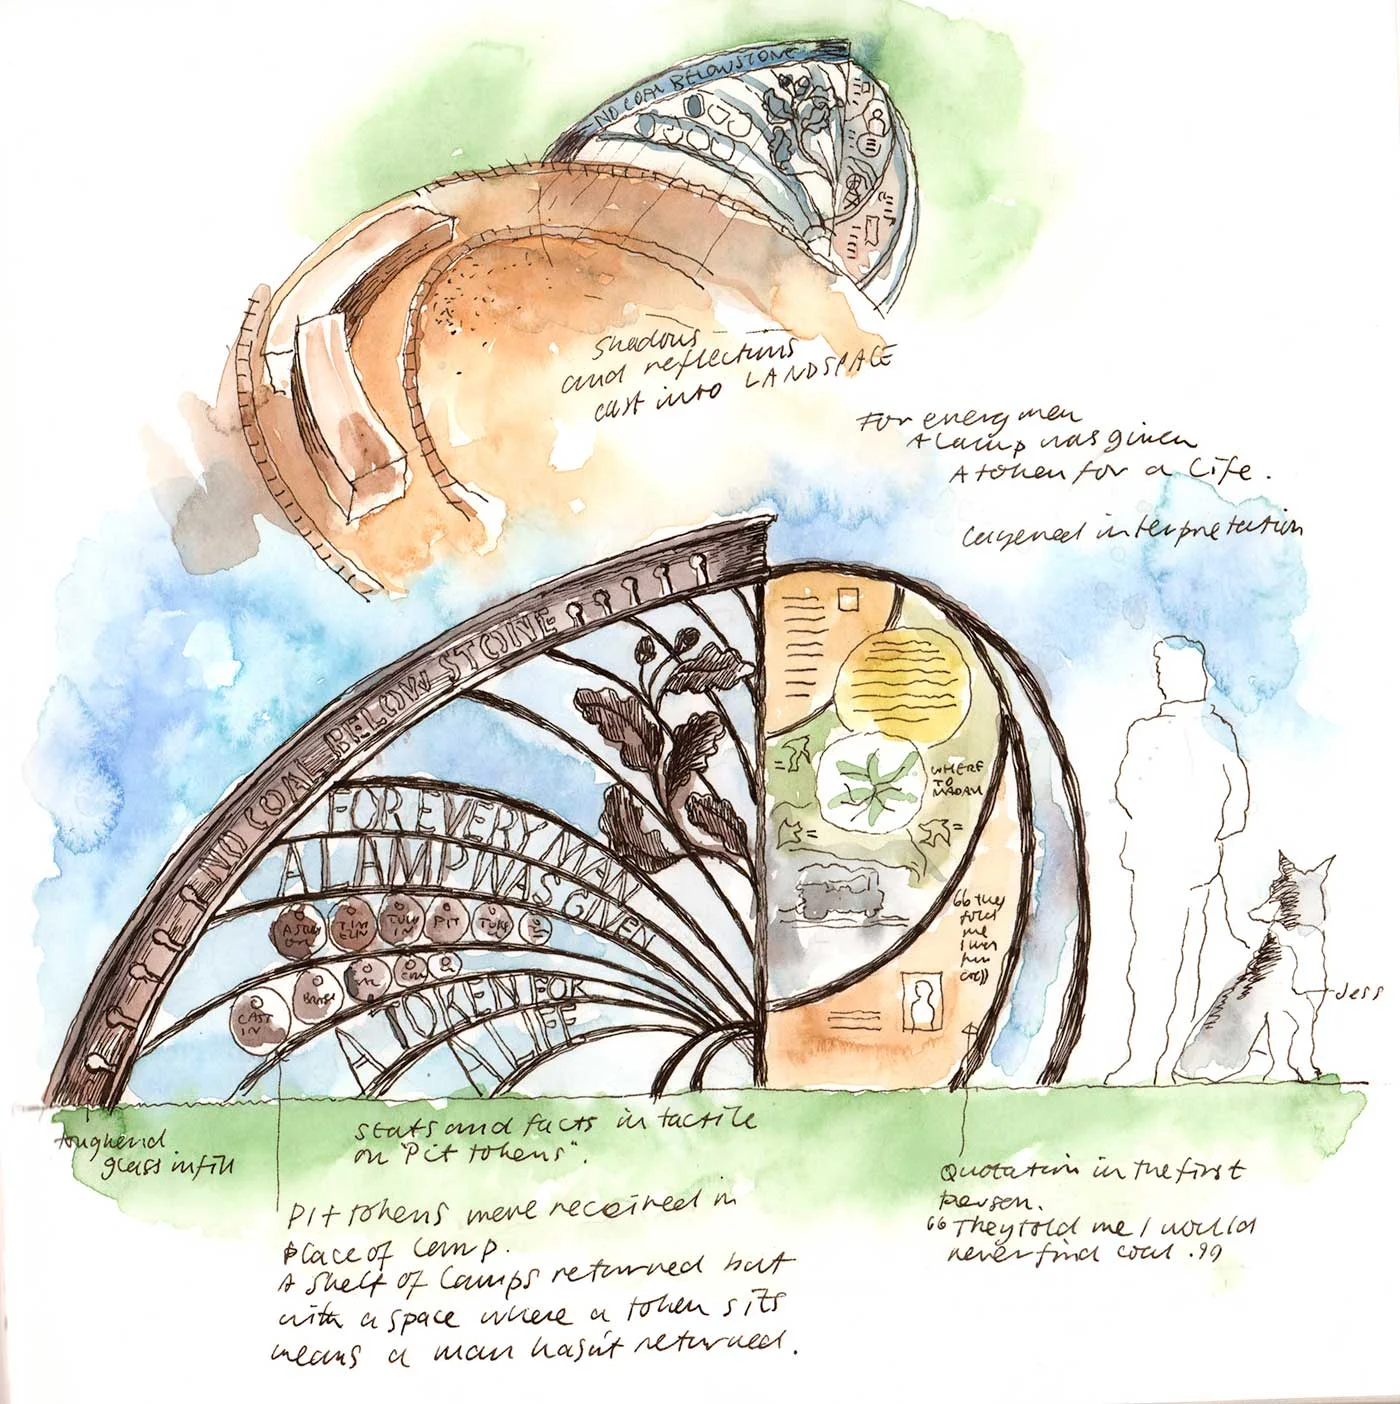 NO COAL BELOW STONE
Shadows
and reflections
cast into LANDSPACE
For every men
A Lamp was given
A token for a Life.
Layered interpretation
NO COAL BELOW STONE
FOR EVERY MAN
A LAMP WAS GIVEN
PIT
CAST
IN
A TOKEN FOR
A LIFE
WHERE
TO
"they
told
me
I was
Jess
toughend
glass infill
Stats and facts in tactile
on "Pit tokens".
Pit tokens were received in
place of Lamp.
A shelf of Lamps returned but
with a space where a token sits
means a man hasn't returned.
Quotation in the first
person.
"They told me I would
never find coal."